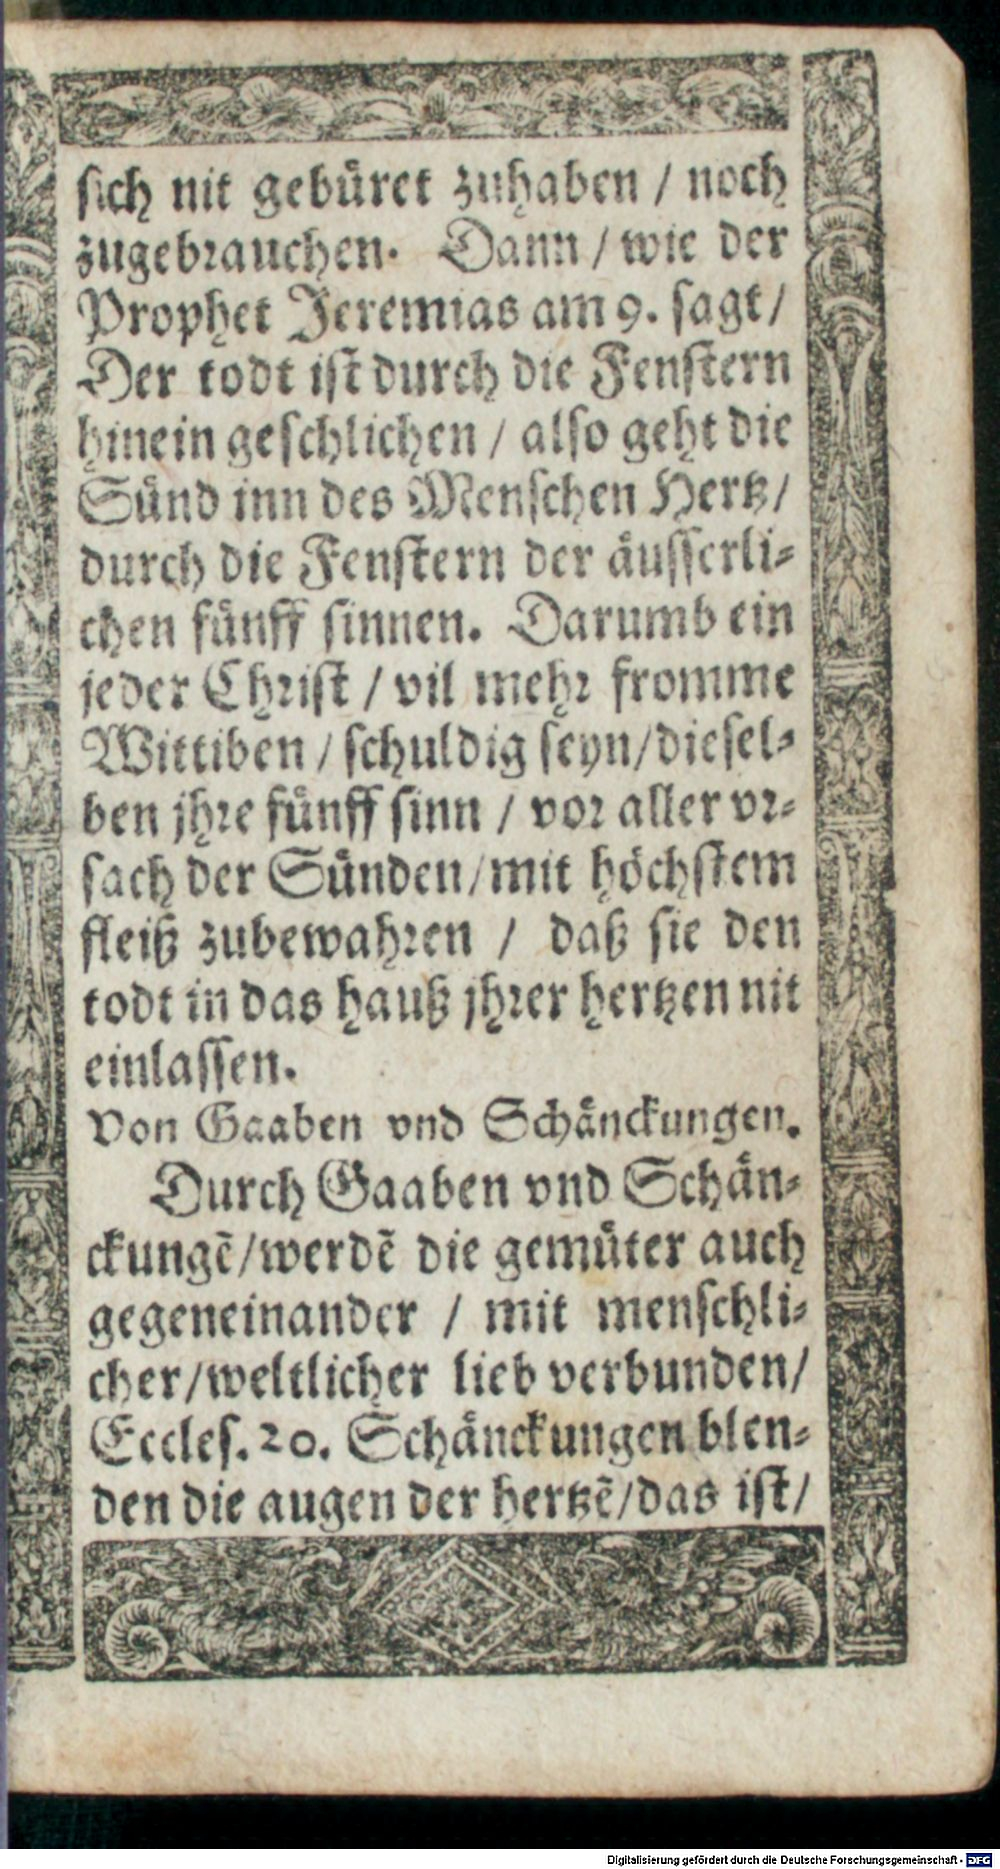 sich nit gebüret zuhaben / noch
zugebrauchen. Dann / wie der
Prophet Jeremias am 9. sagt /
Der todt ist durch die Fenstern
hinein geschlichen / also geht die
Sünd inn des Menschen Hertz /
durch die Fenstern der äusserli-
chen fünff sinnen. Darumb ein
jeder Christ / vil mehr fromme
Wittiben / schuldig seyn / diesel-
ben jhre fünff sinn / vor aller vr-
sach der Sünden / mit höchstem
fleiß zubewahren / daß sie den
todt in das hauß jhrer hertzen nit
einlassen.
Von Gaaben vnd Schänckungen.
Durch Gaaben vnd Schän-
ckungẽ / werdẽ die gemüter auch
gegeneinander / mit menschli-
cher / weltlicher lieb verbunden /
Eccles. 20. Schänckungen blen-
den die augen der hertzẽ / das ist /
Digitalisierung gefördert durch die Deutsche Forschungsgemeinschaft - DFG